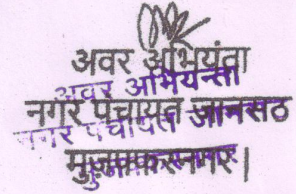 अवर अभियंता
अवर अभियन्ता
नगर पंचायत जानसठ
नगर पंचायत जानसठ
मुजफ्फरनगर।